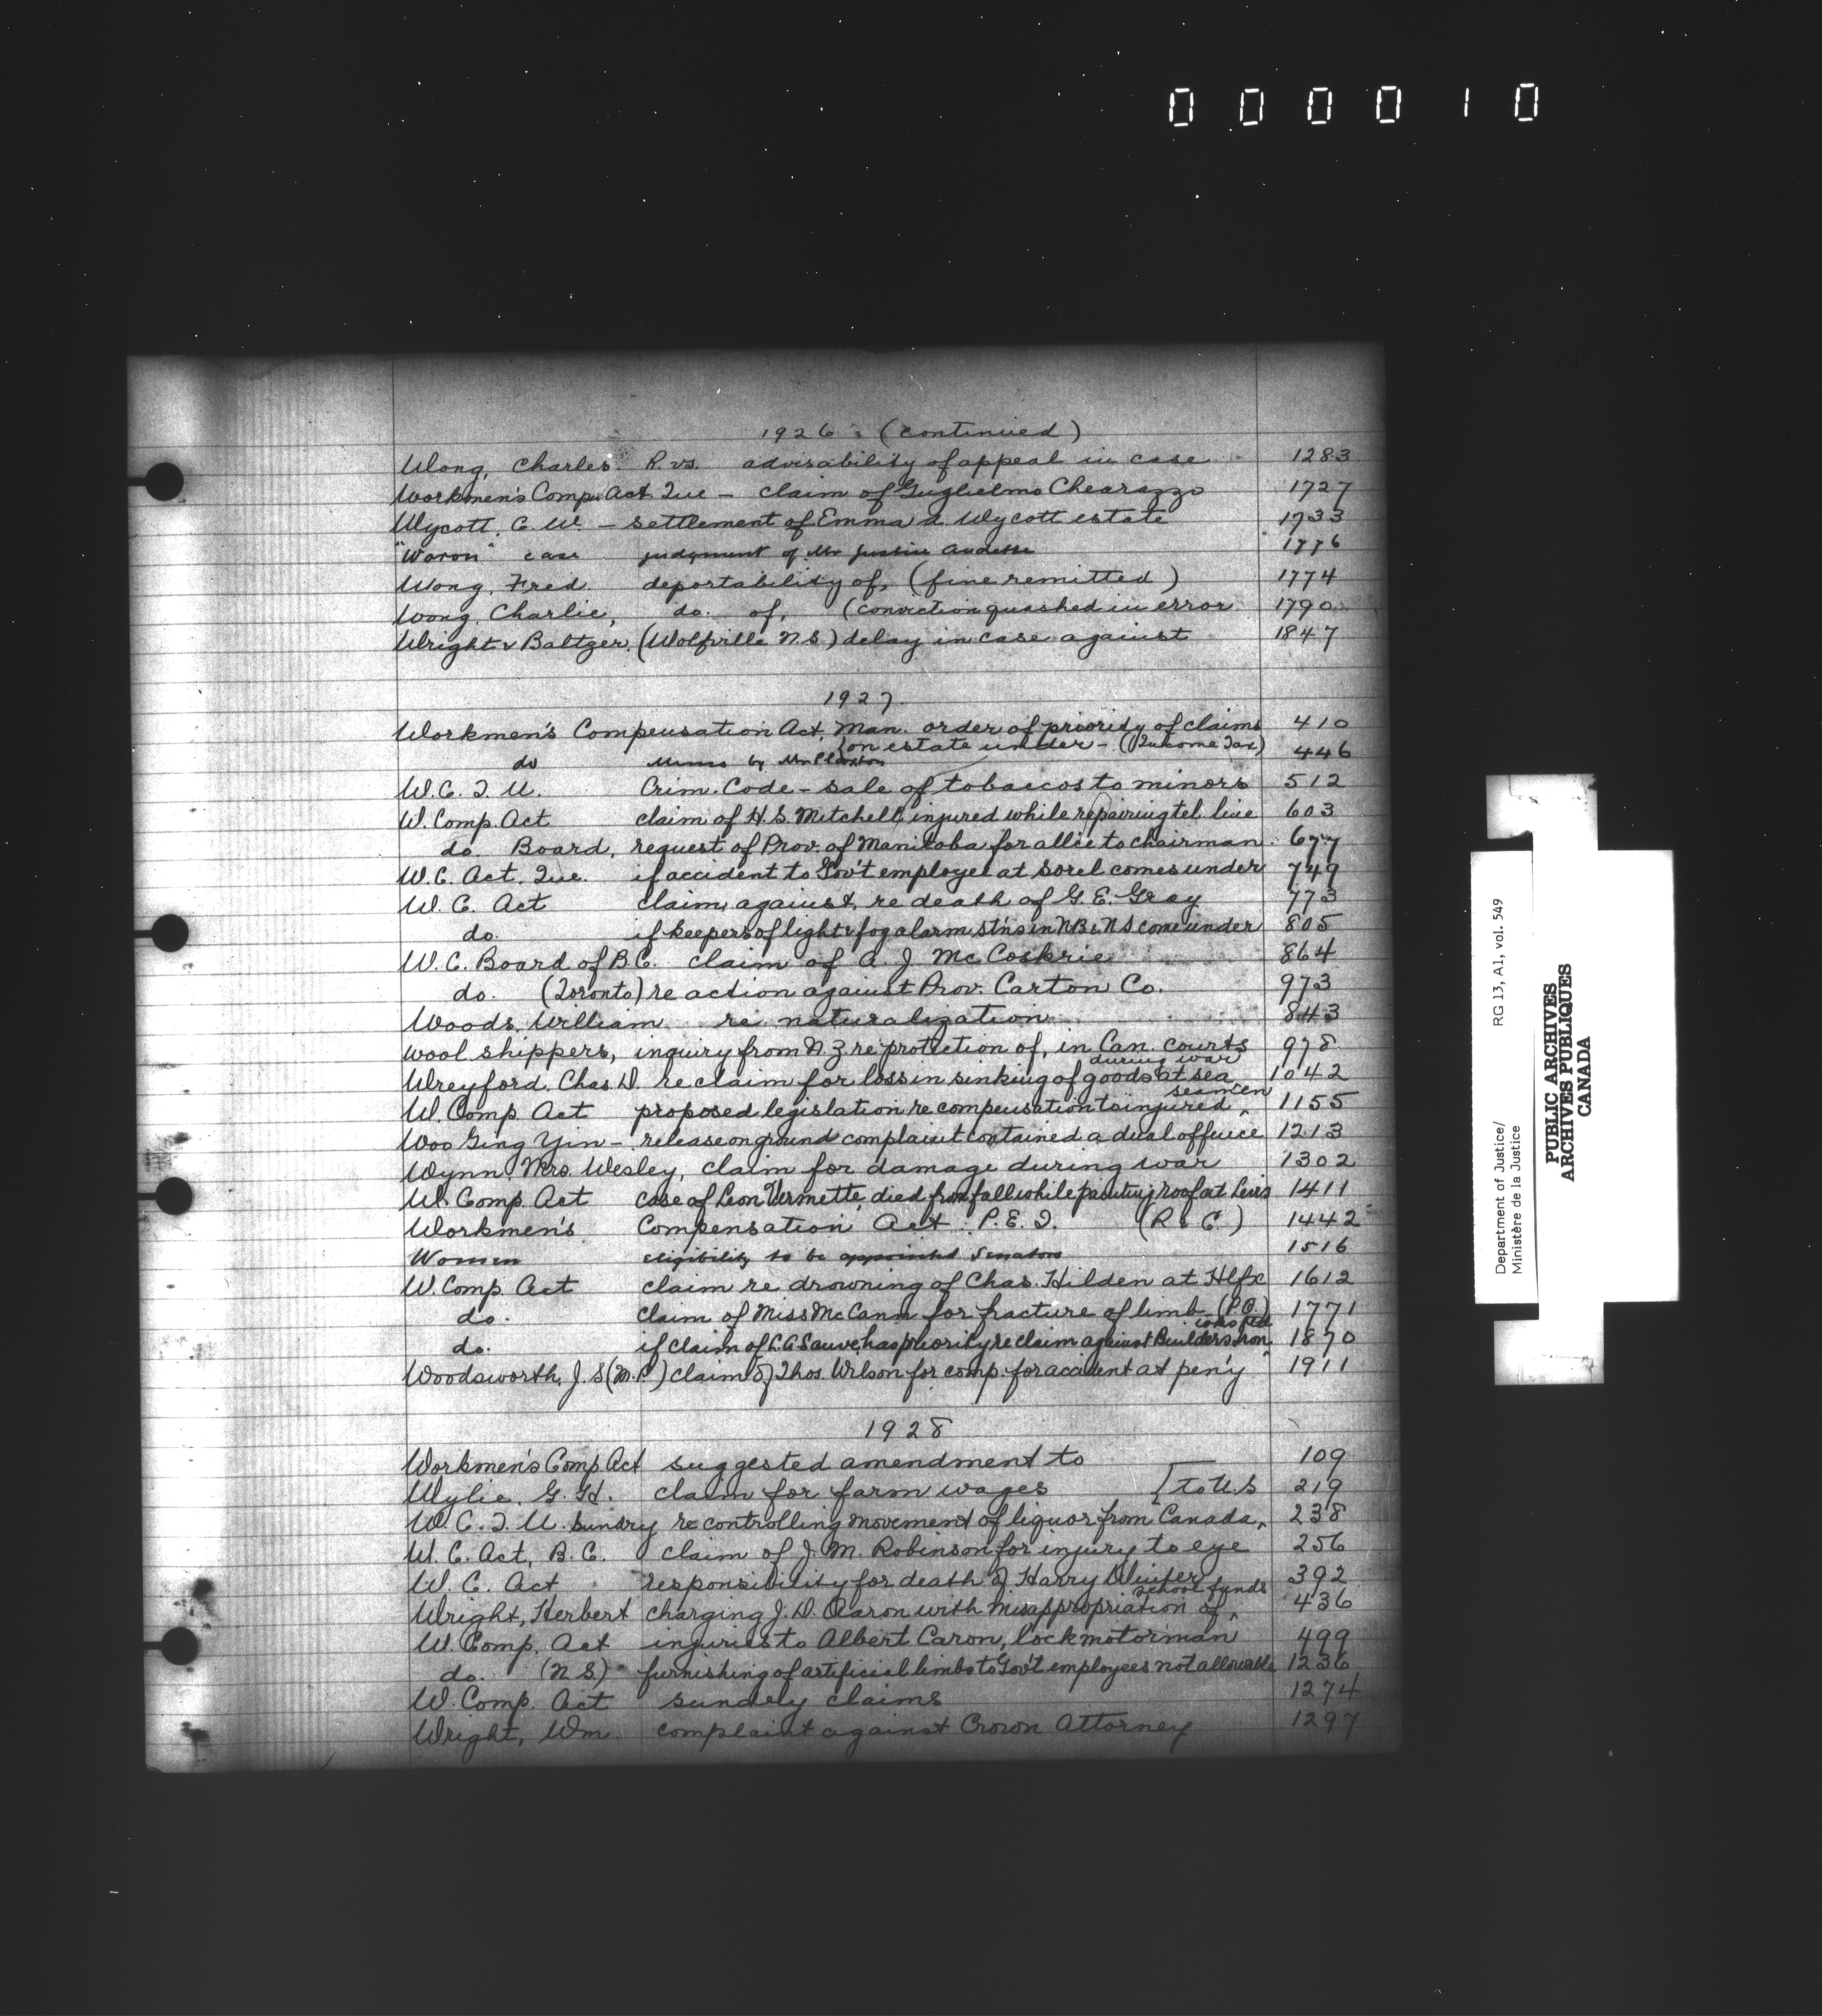 000010
1926. (continued)
Wong, Charles. R. vs. advisability of appeal in case 1283
Workmen's Comp. Act. Que - claim of Guglielmo Chearazzo 1727
Wycott, C. W. - settlement of Emma A. Wycott estate 1733
"Woron" case judgment of Mr Justice Audette 1776
Wong, Fred deportability of, (fine remitted) 1774
Wong, Charlie, do. of, (conviction quashed in error 1790
Wright & Baltzer, (Wolfville N.S.) delay in case against 1847
1927.
Workmen's Compensation Act, Man. order of priority of claims 410
{on estate under - (Income Tax)
do Memo by Mr Plaxton 446
W.C.T.U. Crim. Code - sale of tobaccos to minors 512
W. Comp. Act claim of H. S. Mitchell, injured while repairing tel. line 603
do Board, request of Prov. of Manitoba for allce to chairman 677
W.C. Act. Que. if accident to Gov't employee at Sorel comes under 749
W. C. Act claim against, re death of G. E. Gray 773
do. if keepers of light & fog alarm st'ns in NB & NS come under 805
W. C. Board of B.C. claim of A. J. McCoskrie 864
do. (Toronto) re action against Prov. Carton Co. 973
Woods, William re naturalization 843
Wool shippers, inquiry from N.Z re protection of, in Can. courts 978
during war
Wreyford, Chas. D. re claim for loss in sinking of goods at sea 1042
seamen
W. Comp. Act proposed legislation re compensation to injured ^ 1155
Woo Ging Yin - release on ground complaint contained a dual offence 1213
Wynn, Mrs. Wesley, claim for damage during war 1302
W. Comp. Act case of Leon Vermette, died from fall while painting roof at Levis 1411
Workmen's Compensation Act. P.E.I. (R & C.) 1442
Women eligibility to be appointed Senators 1516
W. Comp. Act claim re drowning of Chas. Hilden at Hlfx 1612
do. claim of Miss McCann for fracture of limb (P.O.) 1771
do. if claim of L. A. Sauve has priority re claim against Builders Iron 1870
Woodsworth, J. S (M.P.) claim of Thos. Wilson for comp. for accident at pen'y 1911
1928
Workmen's Comp Act suggested amendment to 109
Wylie, G. H. claim for farm wages 219
[to U.S
W.C.T.U. Sundry re controlling movement of liquor from Canada, ^ 238
W. C. Act, B.C. claim of J. M. Robinson for injury to eye 256
W. C. Act responsibility for death of Harry Winter 392
school funds
Wright, Herbert charging J. D. Aaron with misappropriation of ^ 436
W. Comp. Act injuries to Albert Caron, lock motorman 499
do. (N.S.) furnishing of artificial limbs to Gov't employees not allowable 1236
W. Comp. Act sundry claims 1274
Wright, Wm. complaint against Crown Attorney 1297
Department of Justice/
Ministère de la Justice
RG 13, A1, vol. 549
PUBLIC ARCHIVES
ARCHIVES PUBLIQUES
CANADA